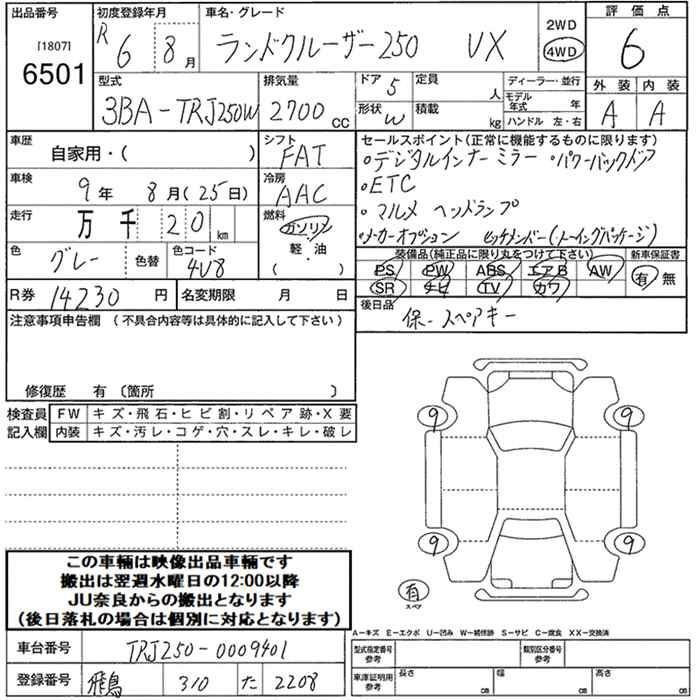 出品番号
[1807]
6501
初度登録年月
R 6 8 月
車名・グレード
ランドクルーザー250 VX
2WD
4WD
評価点
6
型式
3BA-TRJ250W
排気量
2700 cc
ドア 5
形状 W
定員 人
積載 kg
ディーラー・並行
モデル年式 年
ハンドル 左・右
外装 内装
A A
車歴
自家用・( )
シフト
FAT
車検
9年 8月(25日)
冷房
AAC
走行
万 千 20 km
燃料
ガソリン
軽・油
( )
色
グレー
色替
色コード
4V8
セールスポイント(正常に機能するものに限ります)
・デジタルインナーミラー ・パワーバックドア
・ETC
・マルメ ヘッドランプ
・メーカーオプション ヒッチメンバー(トーイングパッケージ)
装備品(純正品に限り丸をつけて下さい)
PS PW ABS エアB AW
SR ナビ TV カワ
新車保証書
有・無
R券 14230 円
名変期限 月 日
後日品
保・スペアキー
注意事項申告欄 (不具合内容等は具体的に記入して下さい)
修復歴 有 (箇所 )
検査員記入欄
FW キズ・飛石・ヒビ割・リペア跡・X要
内装 キズ・汚レ・コゲ・穴・スレ・キレ・破レ
9 9
9 9
有
スペア
この車輌は映像出品車輌です
搬出は翌週水曜日の12:00以降
JU奈良からの搬出となります
(後日落札の場合は個別に対応となります)
A-キズ E-エクボ U-凹み W-補修跡 S-サビ C-腐食 XX-交換済
車台番号
TRJ250-0009401
型式指定番号 参考
類別区分番号 参考
登録番号
飛鳥 310 た 2208
車庫証明用 参考
長さ cm 幅 cm 高さ cm